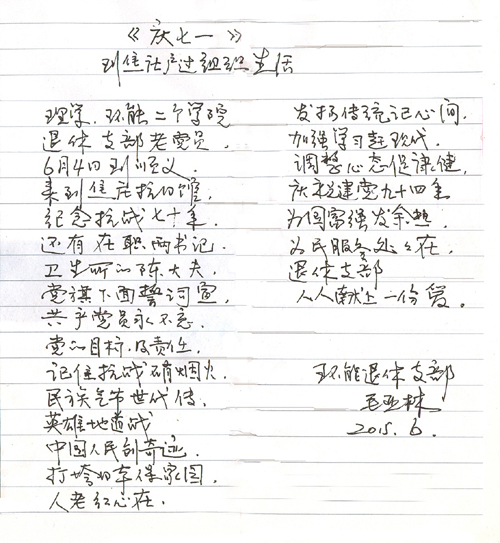 《庆七一》
到焦庄户过组织生活
理学、环能二个学院
退休支部老党员，
6月4日到顺义，
来到焦庄抗日馆，
纪念抗战七十年，
还有在职两书记，
卫生所的陈大夫，
党旗下面誓词宣，
共产党员永不忘，
党的目标及责任，
记住抗战硝烟火，
民族气节世代传，
英雄地道战
中国人民创奇迹，
打垮日军保家园，
人老红心在，
发扬传统记心间，
加强学习赶现代，
调整心态促康健，
庆祝建党九十四年
为国富强发余热，
为民服务处处在，
退休支部
人人献上一份爱。
环能退休支部
毛亚林
2015.6.